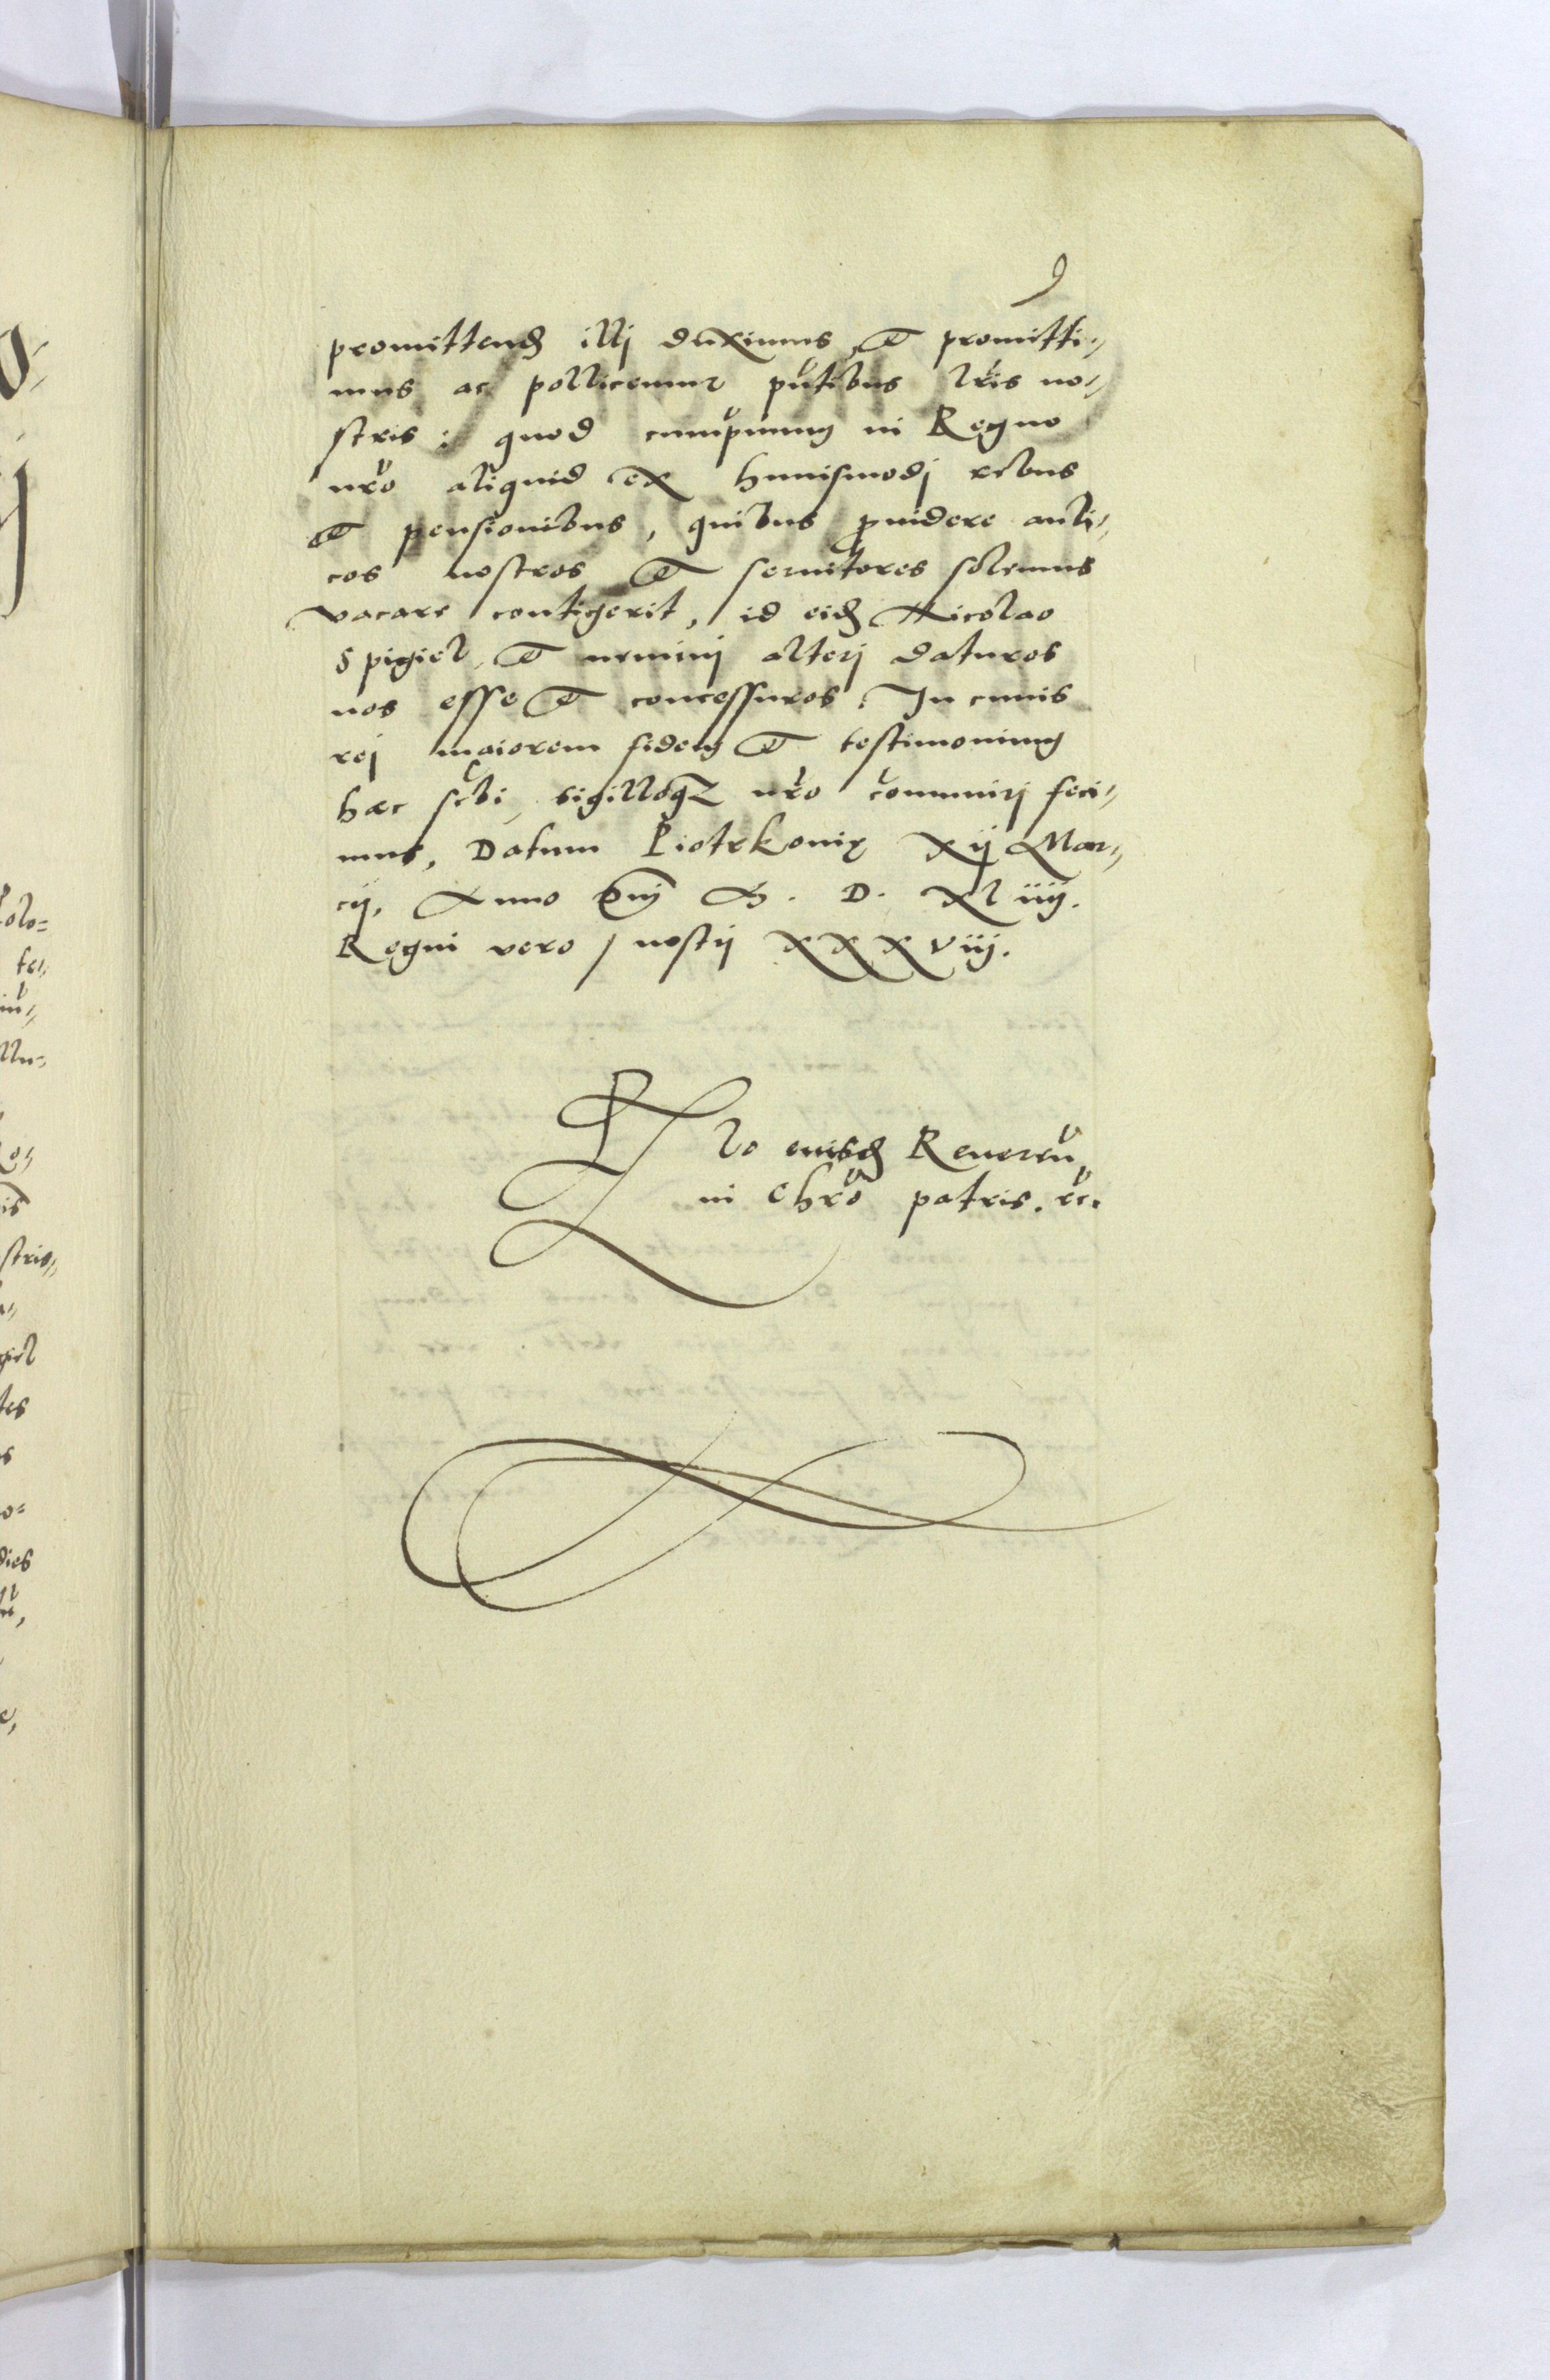 9
promittend illj duximus, et promitti„
mus ac pollicemur pñtibus lris no„
stris: quod cumprimum in Regno
nro aliquid ex huiusmodj rebus
et pensionibus, quibus prouidere auli„
cos nostros et seruitores solemus
vacare contigerit, id eid Nicolao
Spigiel, et neminj alterj daturos
nos esse et concessuros. In cuius
rej maiorem fidem et testimonium
hæc scbi, sigilloq nro comunirj feci„
mus, Datum Piotrkouię xij Mar„
cij, Anno Dnj M. D. XLiiij.
Regni vero nostrj xxxviij.
Rlo eiusd Reueren
in Chro patris. rc.